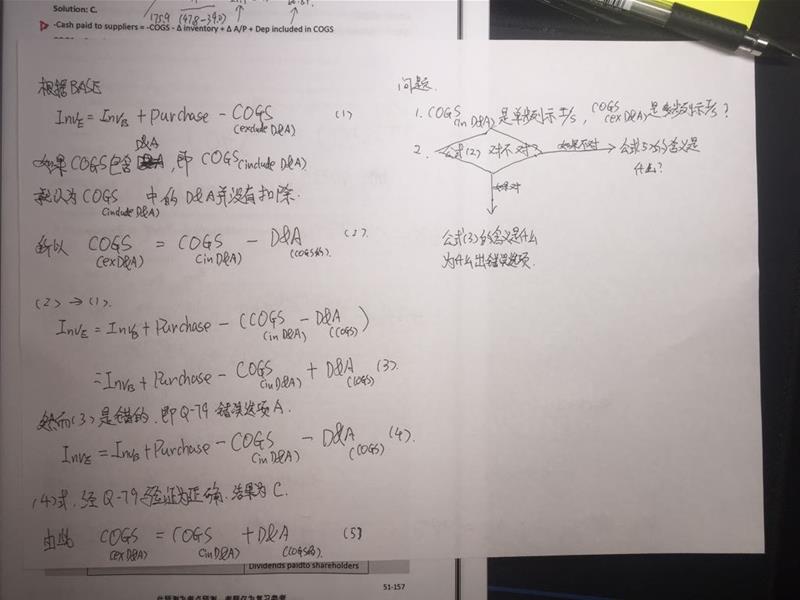 Solution: C.
175.9 (47.8-39.0)
-Cash paid to suppliers = -COGS - Δ inventory + Δ A/P + Dep included in COGS
根据BASE
InvE = InvB + Purchase - COGS (exclude D&A) (1)
D&A
如果COGS包含 即 COGS (include D&A)
就认为COGS (include D&A) 中的D&A并没有扣除.
所以 COGS (ex D&A) = COGS (in D&A) - D&A (COGS的). (2).
(2) → (1).
InvE = InvB + Purchase - (COGS (in D&A) - D&A (COGS))
= InvB + Purchase - COGS (in D&A) + D&A (COGS) (3).
然而(3)是错的, 即Q-79 错误选项A.
InvE = InvB + Purchase - COGS (in D&A) - D&A (COGS) (4).
(4)式, 经Q-79验证为正确. 结果为C.
由此 COGS (ex D&A) = COGS (in D&A) + D&A (COGS的). (5)
问题.
1. COGS (in D&A) 是单列示I/S, COGS (ex D&A) 是列示I/S?
2. 公式(2) 对不对? 如果不对 公式(5)的含义是
什么?
如果对
公式(3)的含义是什么
为什么出错误选项.
Dividends paidto shareholders
51-157